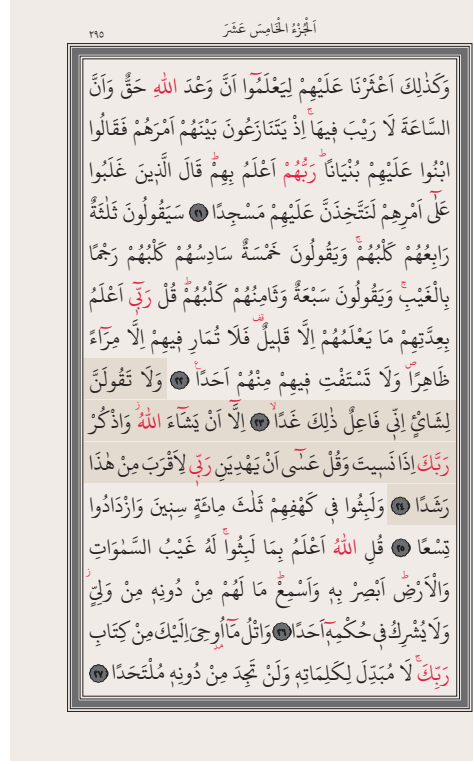 اَلْجُزْءُ الْخَامِسَ عَشَرَ
٢٩٥
وَكَذٰلِكَ اَعْثَرْنَا عَلَيْهِمْ لِيَعْلَمُٓوا اَنَّ وَعْدَ اللّٰهِ حَقٌّ وَاَنَّ
السَّاعَةَ لَا رَيْبَ فٖيهَاۚ اِذْ يَتَنَازَعُونَ بَيْنَهُمْ اَمْرَهُمْ فَقَالُوا
ابْنُوا عَلَيْهِمْ بُنْيَانًاؕ رَبُّهُمْ اَعْلَمُ بِهِمْؕ قَالَ الَّذٖينَ غَلَبُوا
عَلٰٓى اَمْرِهِمْ لَنَتَّخِذَنَّ عَلَيْهِمْ مَسْجِدًا ﴿٢١﴾ سَيَقُولُونَ ثَلٰثَةٌ
رَابِعُهُمْ كَلْبُهُمْۚ وَيَقُولُونَ خَمْسَةٌ سَادِسُهُمْ كَلْبُهُمْ رَجْمًا
بِالْغَيْبِۚ وَيَقُولُونَ سَبْعَةٌ وَثَامِنُهُمْ كَلْبُهُمْؕ قُلْ رَبّٖٓى اَعْلَمُ
بِعِدَّتِهِمْ مَا يَعْلَمُهُمْ اِلَّا قَلٖيلٌ قف فَلَا تُمَارِ فٖيهِمْ اِلَّا مِرَٓاءً
ظَاهِرًاࣕ وَلَا تَسْتَفْتِ فٖيهِمْ مِنْهُمْ اَحَدًاۚ ﴿٢٢﴾ وَلَا تَقُولَنَّ
لِشَایْءٍ اِنّٖى فَاعِلٌ ذٰلِكَ غَدًاۙ ﴿٢٣﴾ اِلَّٓا اَنْ يَشَٓاءَ اللّٰهُؗ وَاذْكُرْ
رَبَّكَ اِذَا نَسٖيتَ وَقُلْ عَسٰٓى اَنْ يَهْدِيَنِ رَبّٖى لِاَقْرَبَ مِنْ هٰذَا
رَشَدًا ﴿٢٤﴾ وَلَبِثُوا فٖى كَهْفِهِمْ ثَلٰثَ مِائَةٍ سِنٖينَ وَازْدَادُوا
تِسْعًا ﴿٢٥﴾ قُلِ اللّٰهُ اَعْلَمُ بِمَا لَبِثُواۚ لَهُ غَيْبُ السَّمٰوَاتِ
وَالْاَرْضِؕ اَبْصِرْ بِهٖ وَاَسْمِعْؕ مَا لَهُمْ مِنْ دُونِهٖ مِنْ وَلِیٍّؗ
وَلَا يُشْرِكُ فٖى حُكْمِهٖٓ اَحَدًا ﴿٢٦﴾ وَاتْلُ مَٓا اُو۫حِىَ اِلَيْكَ مِنْ كِتَابِ
رَبِّكَۚ لَا مُبَدِّلَ لِكَلِمَاتِهٖ وَلَنْ تَجِدَ مِنْ دُونِهٖ مُلْتَحَدًا ﴿٢٧﴾